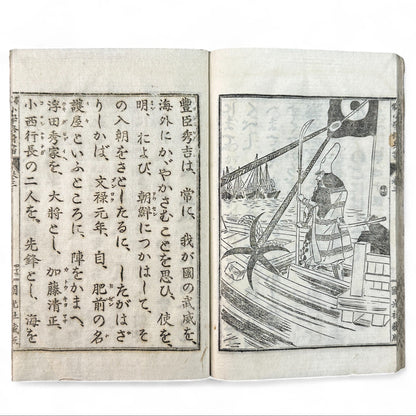 豐臣秀吉は、常に、我が國の武威を、
海外にかゞやかさむことを思ひ、使を、
明、および、朝鮮につかはして、そ
の入朝をさとしたるに、したがはざ
りしかば、文祿元年、自、肥前の名
護屋といふところに、陣をかまへ、
浮田秀家を、大將とし、加藤清正、
小西行長の二人を、先鋒とし、海を